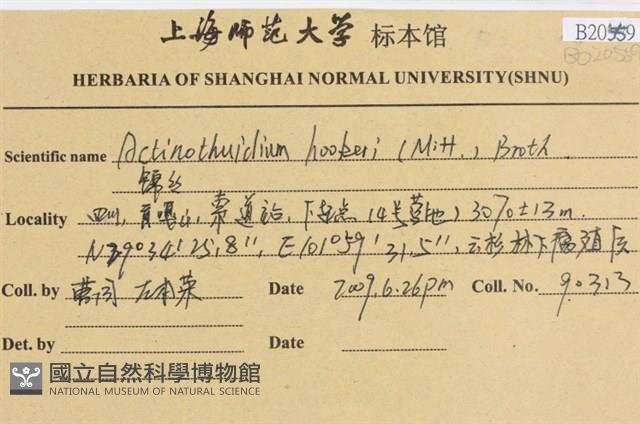 上海师范大学 标本馆
B20559
HERBARIA OF SHANGHAI NORMAL UNIVERSITY(SHNU)
Scientific name Actinothuidium hookeri (Mitt.) Broth.
锦丝
Locality 四川, 贡嘎山, 索道站, 下 点 (4号营地) 3070±13m.
N29°34'25.8", E101°59'31.5", 云杉林下腐殖质
Coll. by 曹同 左本荣 Date 2009.6.26pm Coll. No. 90313
Det. by Date
國立自然科學博物館
NATIONAL MUSEUM OF NATURAL SCIENCE